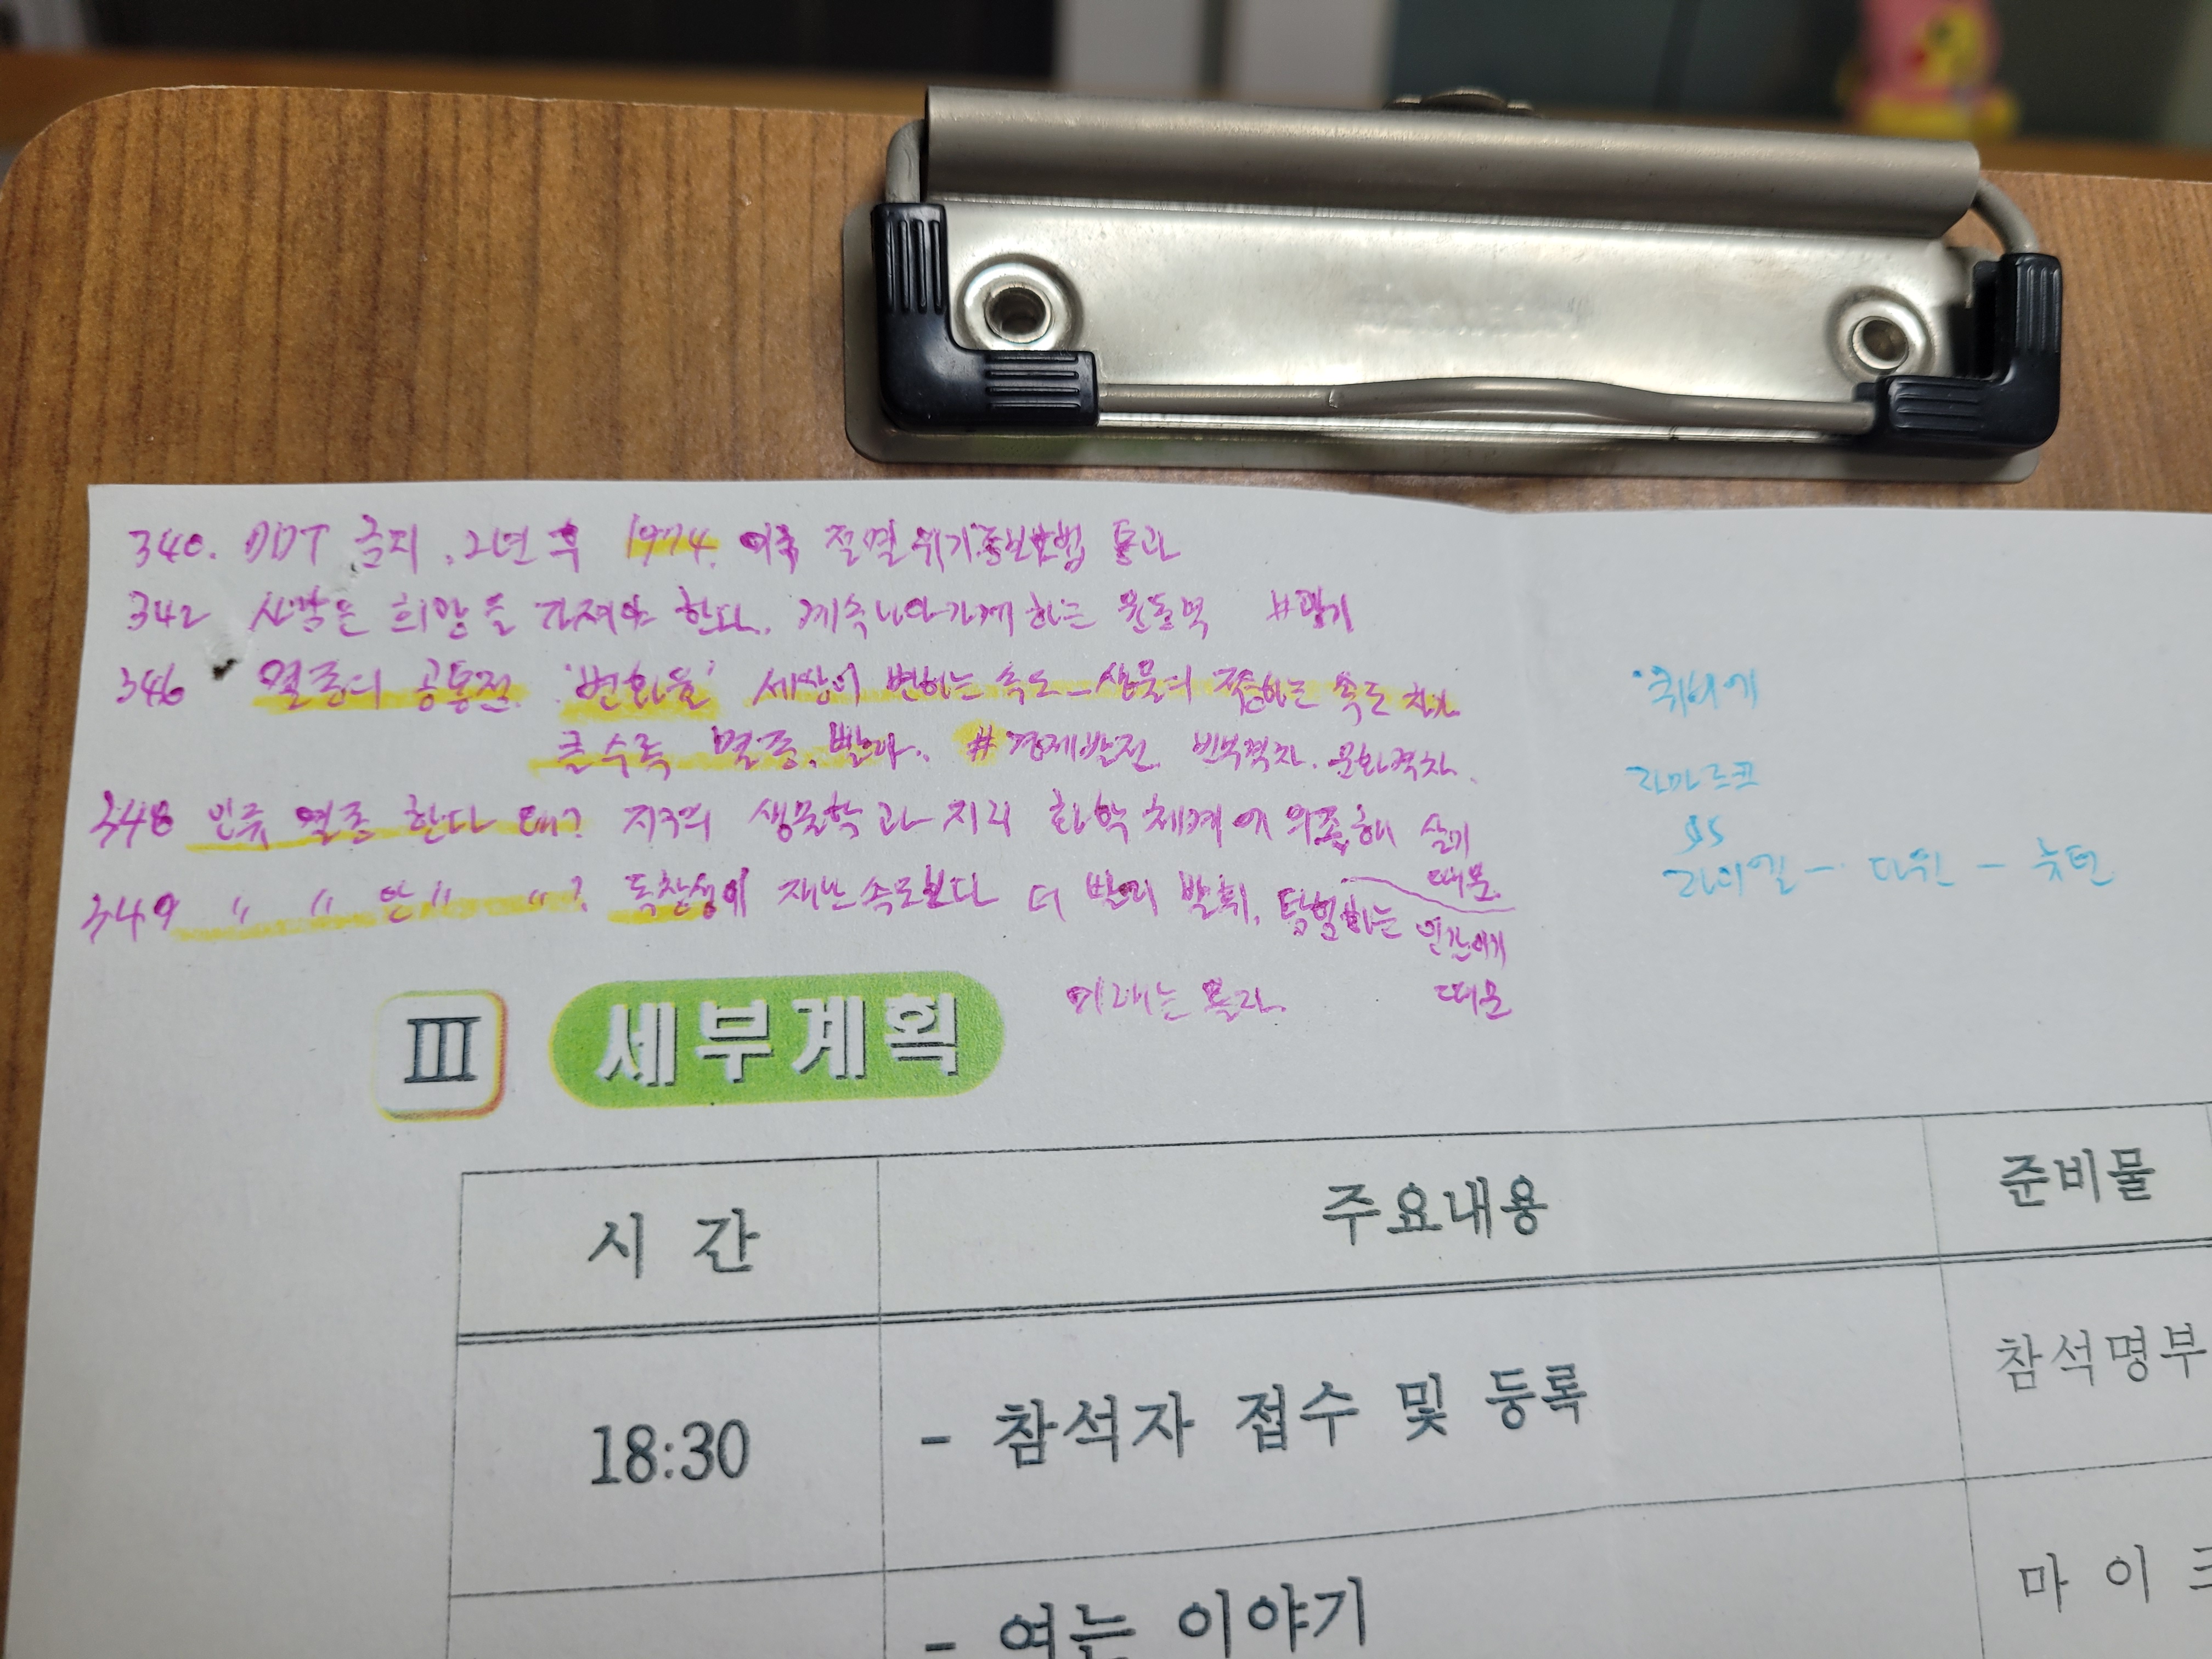 340. DDT 금지. 2년 후 1974. 미국 절멸위기종보호법 통과
342 사람은 희망을 가져야 한다. 계속 나아가게 하는 원동력 #광기
346 멸종의 공통점. '변화율' 세상이 변하는 속도 - 생물의 적응하는 속도 차가
클수록 멸종. 빨라. # 경제발전. 빈부격차. 문화격차.
348 인류 멸종 한다 왜? 지구의 생물학과 지리 화학 체계에 의존해 살기
때문.
349 〃 〃 안 〃 〃? 독창성이 재난 속도보다 더 빨리 발휘. 탐험하는 인간이기
때문
미래는 몰라.
·퀴비에
라마르크
VS
라이엘 - 다윈 - 뉴턴
III 세부계획
시 간 주요내용 준비물
18:30 - 참석자 접수 및 등록 참석명부
- 여는 이야기 마 이 크